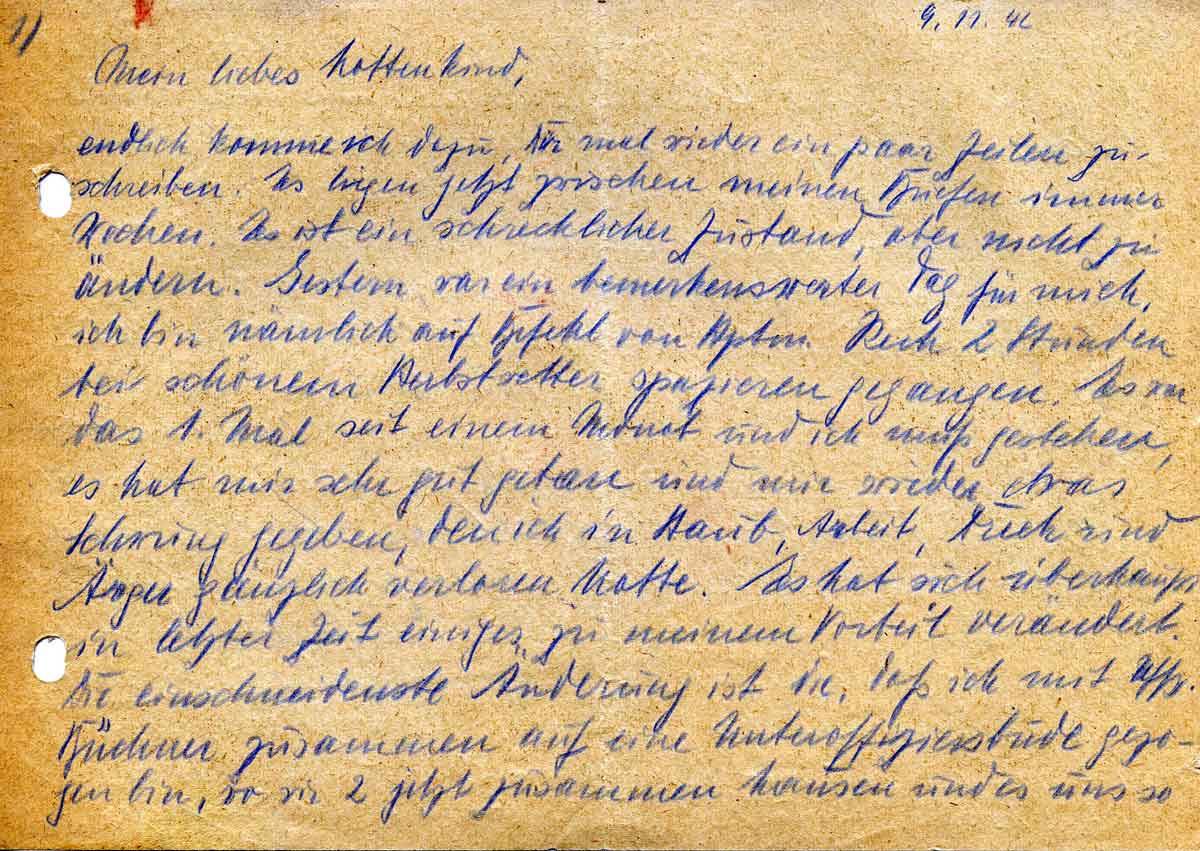 1)
9. 11. 42
Mein liebes Mottenkind,
endlich komme ich dazu, Dir mal wieder ein paar Zeilen zu-
schreiben. Es liegen jetzt zwischen meinen Briefen immer
Wochen. Es ist ein schrecklicher Zustand, aber nicht zu
ändern. Gestern war ein bemerkenswerter Tag für mich,
ich bin nämlich auf Befehl von Hptm. 2 Stunden
bei schönem Herbstwetter spazieren gegangen. Es war
das 1. Mal seit einem Monat und ich muß gestehen,
es hat mir sehr gut getan und mir wieder etwas
Schwung gegeben, den ich in Staub, Arbeit, Dreck und
Ärger gänzlich verloren hatte. Es hat sich überhaupt
in letzter Zeit einiges zu meinem Vorteil verändert.
Die einschneidenste Änderung ist die, daß ich mit Uffz.
Büchner zusammen auf eine Unteroffiziersbude gezo-
gen bin, wo wir 2 jetzt zusammen hausen und es uns so